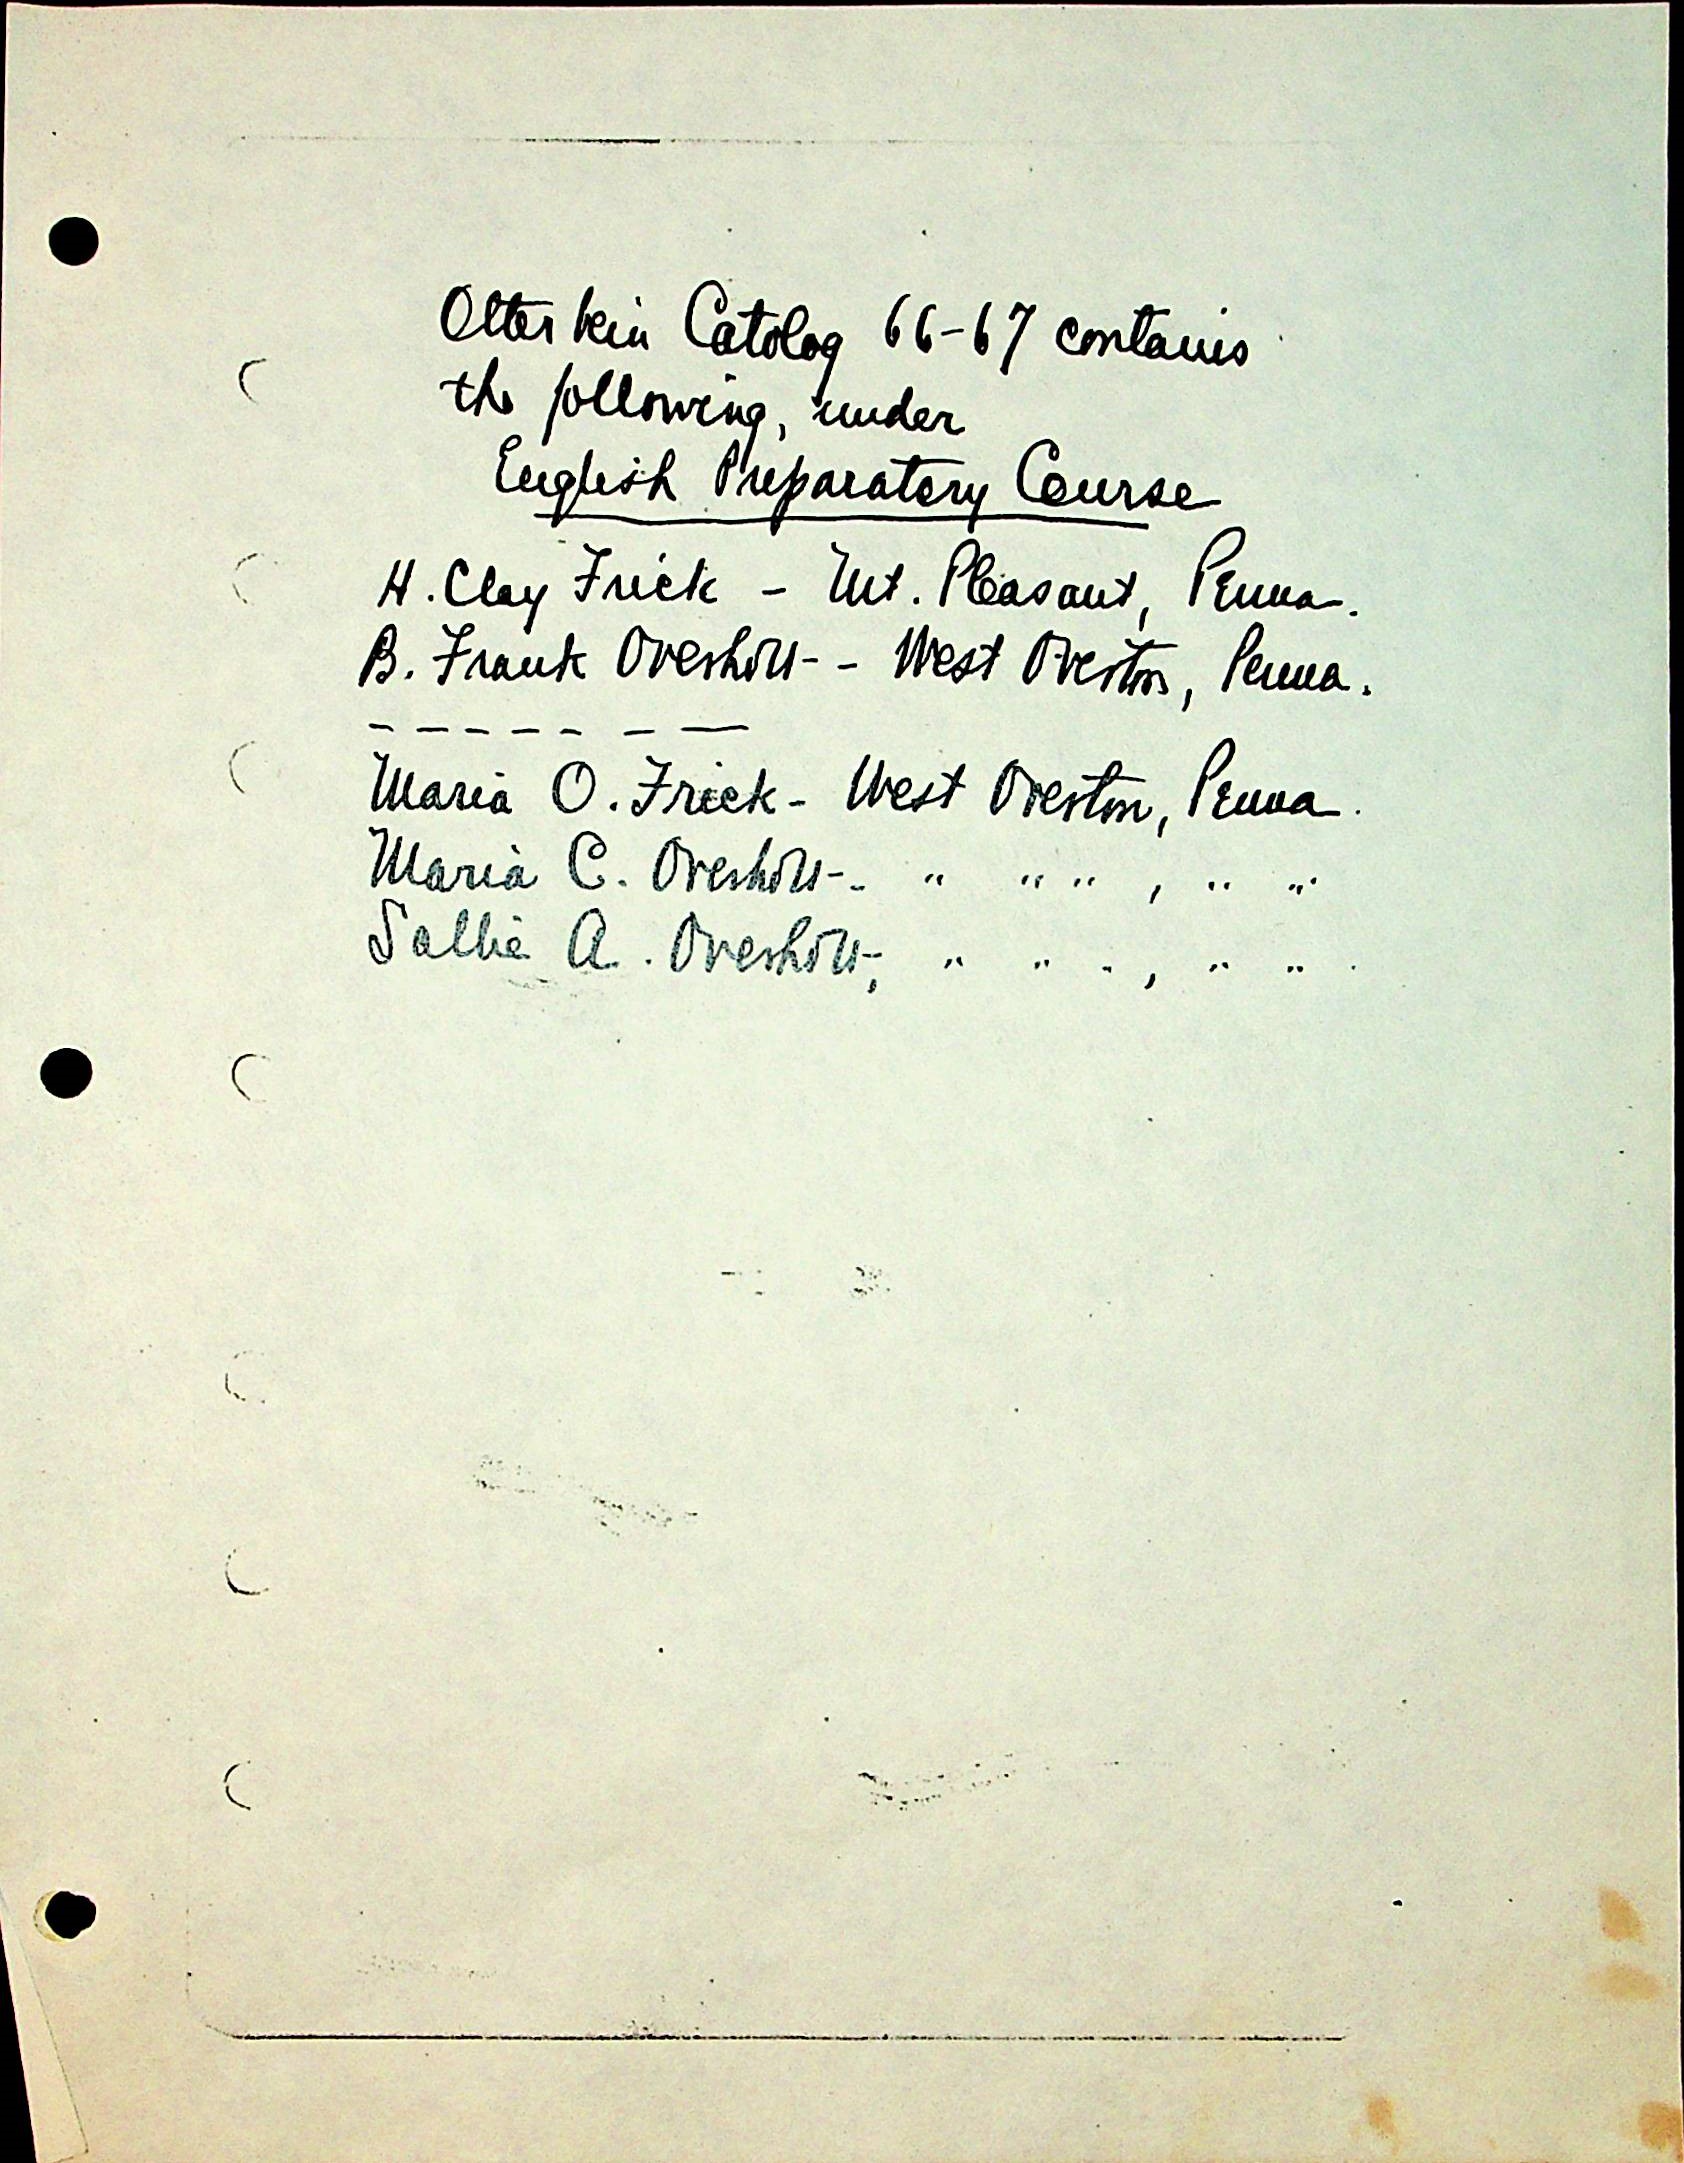 Otterbein Catolog 66-67 contains
the following, under
English Preparatory Course
H. Clay Frick - Mt. Pleasant, Penna.
B. Frank Overholt - - West Overton, Penna.
- - - - - - -
Maria O. Frick - West Overton, Penna.
Maria C. Overholt - - " " " , " "
Sallie A. Overholt - , " " " , " " .